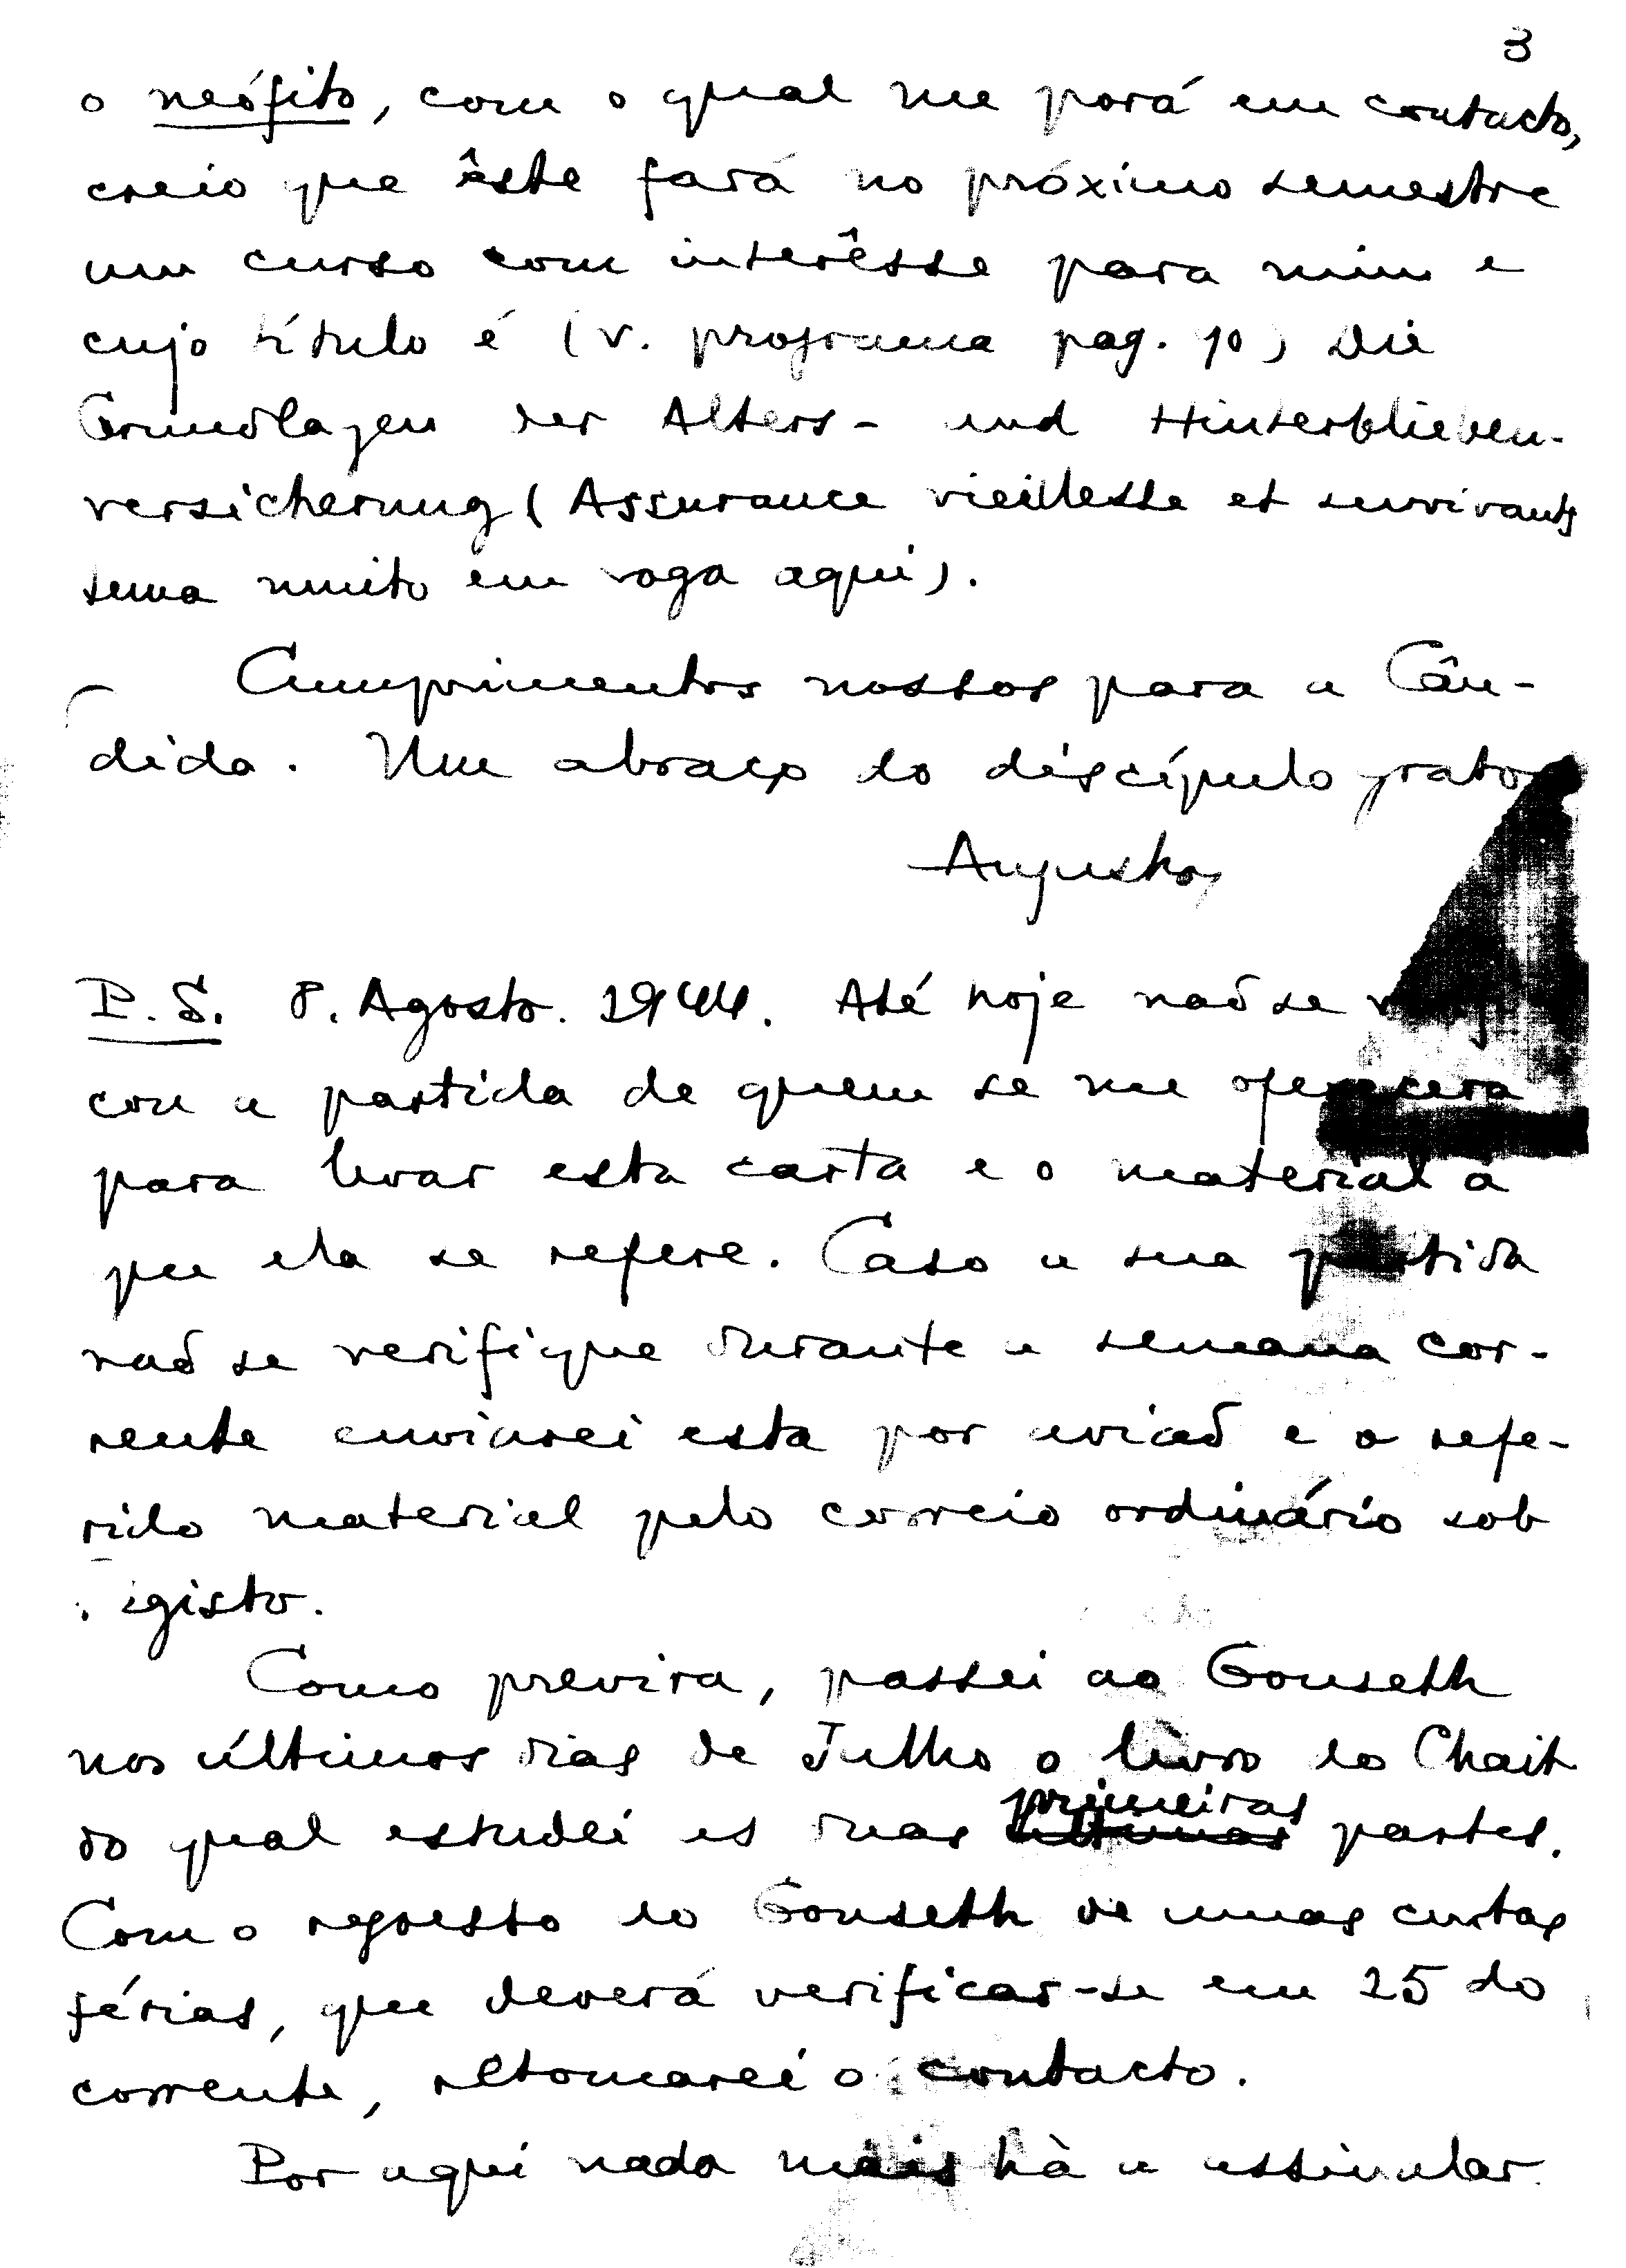 3
o neófito, com o qual me porá em contacto,
creio que êste fará no próximo semestre
um curso com interêsse para mim e
cujo título é (v. programa pag. 10) Die
Grundlagen der Alters- und Hinterblieben-
versicherung (Assurance vieillesse et survivants
tema muito em voga aqui).
Cumprimentos nossos para a Cân-
dida. Um abraço do discípulo grato
Augusto
P.S. 8. Agosto. 1944. Até hoje não se
cou a partida de quem se me oferecera
para levar esta carta e o material a
que ela se refere. Caso a sua partida
não se verifique durante a semana cor-
rente enviarei esta por avião e o refe-
rido material pelo correio ordinário sob
registo.
Como previra, passei ao Gonseth
nos últimos dias de Julho o livro do Chait
do qual estudei as duas primeiras partes.
Com o regresso do Gonseth de umas curtas
férias, que deverá verificar-se em 25 do
corrente, retomarei o contacto.
Por aqui nada mais hà a assinalar.